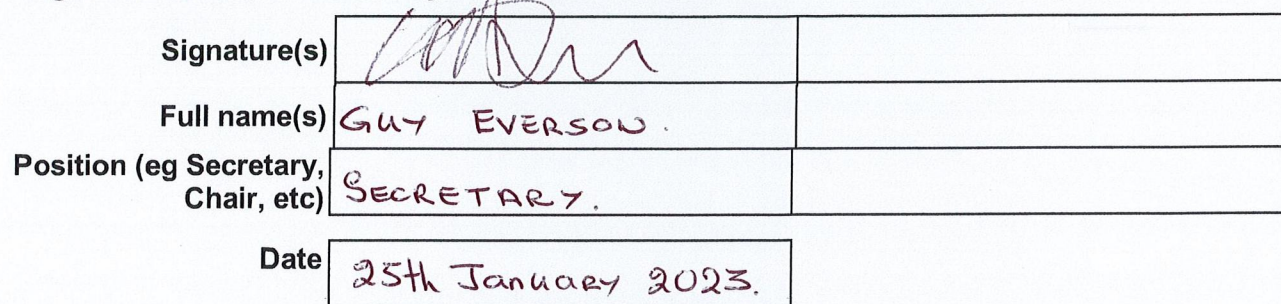 Signature(s)
Full name(s) GUY EVERSON.
Position (eg Secretary,
Chair, etc) SECRETARY.
Date 25th January 2023.